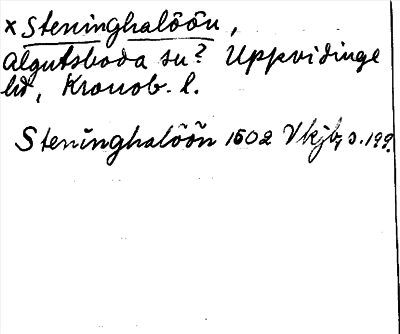 x Steninghalöön,
Algutsboda sn? Uppvidinge
hd, Kronob. l.
Steninghalöön 1502 Vkjb, s. 199.